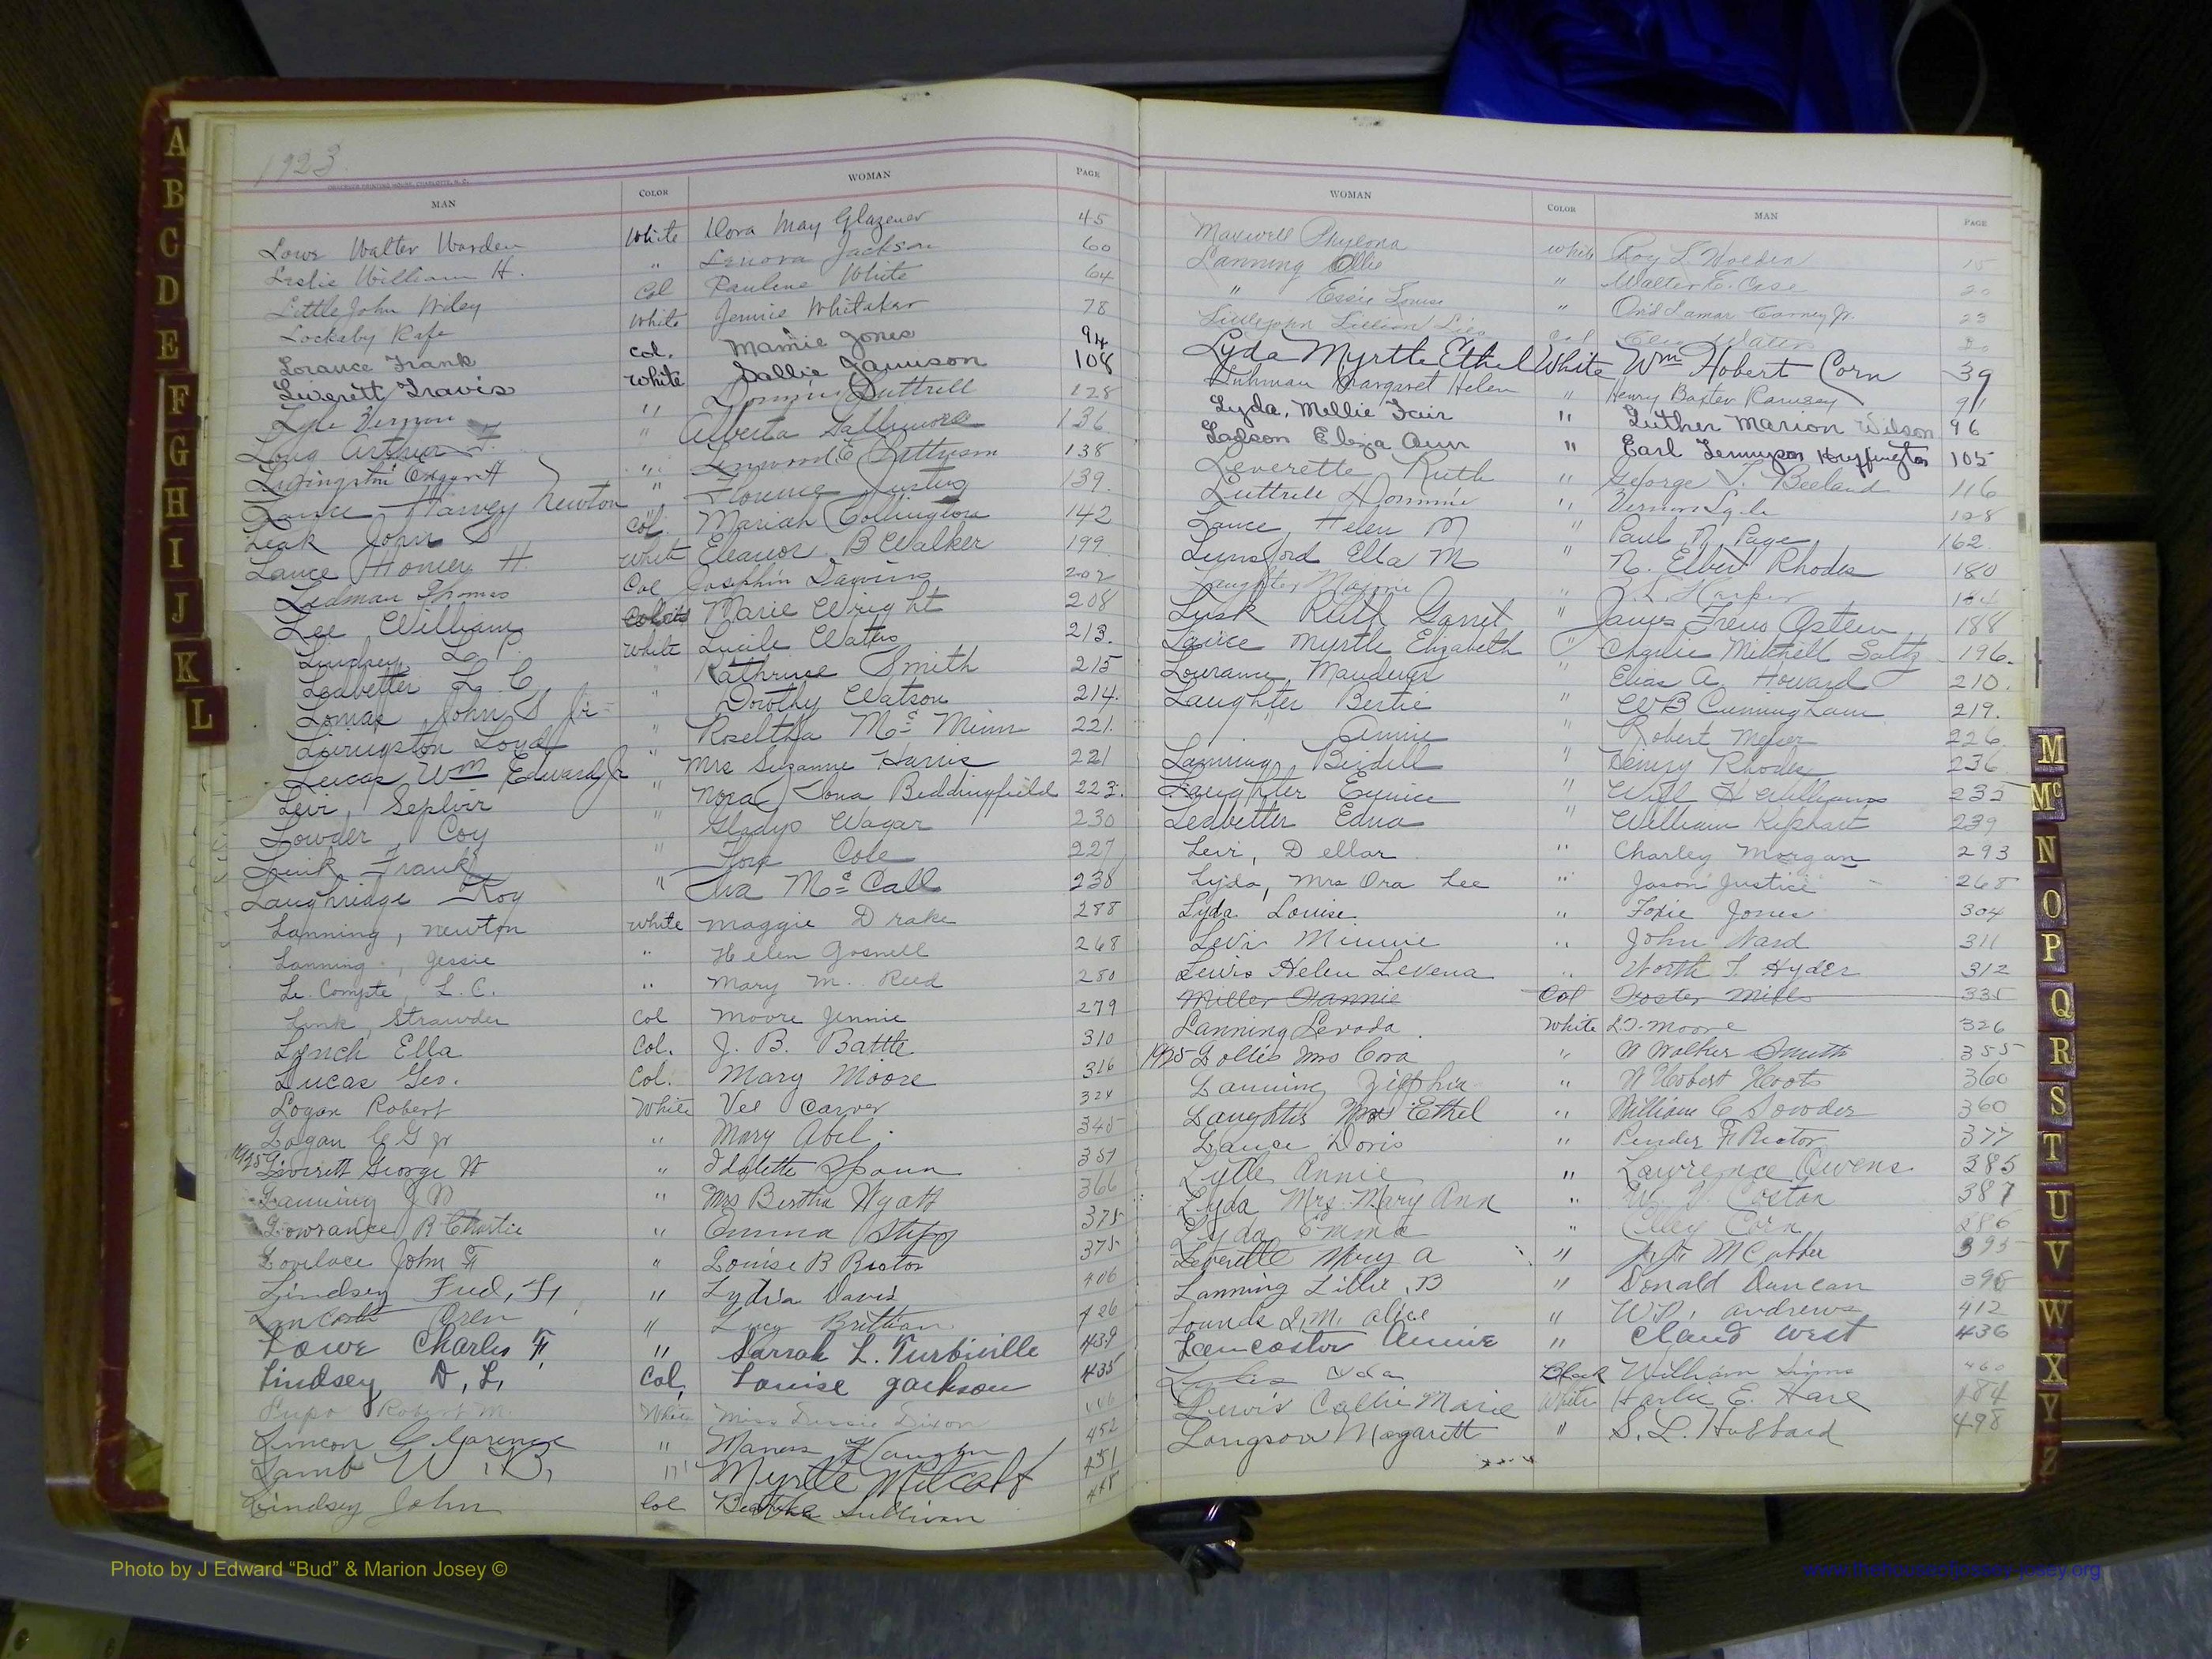 1923
OBSERVER PRINTING HOUSE, CHARLOTTE, N. C.
MAN COLOR WOMAN PAGE
Lowe Walter Warden White Dora May Glazener 45
Leslie William H. " Lenora Jackson 60
Little John Wiley Col Paulene White 64
Lockaby Rafe White Jennie Whitaker 78
Lorance Frank Col. Mamie Jones 94
Leverett Travis White Sallie Jamison 108
Lyle Vernon " Luttrell 128
Long Arthur F. " Alberta Gallimore 136
Livingston " Linwood E Pattyson 138
Lance Harvey Newton " Florence Justus 139
Leak John S Col. Mariah Collington 142
Lance Homer H. White Eleanor B Walker 199
Ledman Thomas Col Josephin Dawins 202
Lee William Marie Wright 208
Lindsey L. P. White Lucile Waters 213.
Ledbetter L. C. " Kathrine Smith 215
Lomas John S Jr " Dorothy Watson 214.
Livingston Loyd " Roseltha Mc Minn 221.
Lucas Wm Edward Jr " Mrs Suzanne Harris 221
Levi, Seplvir " Nora Iona Beddingfield 223.
Lowder, Coy " Gladys Wagar 230
Link Frank " Flora Cole 227
Laughridge Roy " Iva Mc Call 238
Lanning, Newton White Maggie Drake 288
Lanning, Jessie " Helen Gosnell 268
Le Compte, L. C. " Mary M. Reed 280
Link, Strawder Col Moore Jennie 279
Lynch Ella Col. J. B. Battle 310
Lucas Geo. Col. Mary Moore 316
Logan Robert White Vee Carver 324
Logan C G Jr " Mary Abel. 345
1925 Liverett George W " Idolette Spann 351
Lanning J W " Mrs Bertha Wyatt 366
Lowrance R Charlie " Emma Stepp 375
Lovelace John F " Louise B Rector 375
Lindsey Fred, F, " Lydia Davis 406
Lancaster Oren " Lucy Brittian 426
Lowe Charlie F, " Sarrah L. Turbiville 439
Lindsey, D, L, Col, Louise Jackson 435
Robert M. White Miss Dixon
Lincon C Clarence " Maness Vaughn 452
Lamb W. B, " Myrtle Metcalf 451
Lindsey John Col Beatrice Sullivan 448
WOMAN COLOR MAN PAGE
Maxwell Phylona White Roy L Holden 15
Lanning Ollie " Walter E. Case 20
" Essie Louise " Ovid Lamar Carney Jr. 23
Littlejohn Lillian Col Waters
Lyda Myrtle Ethel White Wm Hobert Corn 39
Margaret Helen " Henry Baxter Ramsey 91
Lyda, Mellie Fair " Luther Marion Wilson 96
Ladson Eliza Ann " Earl Tennyson Huffington 105
Leverette Ruth " George V. Beeland 116
Luttrell " Vernon Lyle 128
Lance, Helen M " Paul N. Page 162
Lunsford Ella M " N. Elbert Rhodes 180
Laughter " Harper 184
Lusk Ruth Garret " James Osteen 188
Lance Myrtle Elizabeth " Charlie Mitchell Saltz 196.
Lourance Mandever " Elias A. Howard 210.
Laughter Bertie " W B Cunningham 219.
" Annie " Robert Messer 226
Lanning Beidell " Henry Rhodes 236
Laughter Eunice " Will H Williams 235
Ledbetter Edna " William Kephart 239
Levi, Dellar " Charley Morgan 293
Lyda, Mrs Ora Lee " Jason Justice 268
Lyda Louise " Foxie Jones 304
Levi Minnie " John Ward 311
Lewis Helen Levena " Worth T. Hyder 312
Miller Fannie Col Foster Mills 335
Lanning Levada White L. T. Moore 326
1925 Lollis Mrs Cora " W Walker Smith 355
Lanning Zipphia " W Hobert Hoots 360
Laughter Mrs Ethel " William C Lowder 360
Lance Doris " Pender F Rector 377
Lytle Annie " Lawrence Owens 385
Lyda Mrs. Mary Ann " W. V. Coston 387
Lyda Emma " Corn 286
Leverette Mary A " McAbee 395
Lanning Lillie, B " Donald Duncan 398
Lounds I, M, Alice " W. P. Andrews 412
Lancaster Annie " Claud West 436
Ida Black William Simms 460
Lewis Callie Marie White Harlie E. Hare 484
Longson Magarett " S. L. Hubbard 498
A
B
C
D
E
F
G
H
I
J
K
L
M
Mc
N
O
P
Q
R
S
T
U
V
W
X
Y
Z
Photo by J Edward “Bud” & Marion Josey ©
www.thehouseofjossey-josey.org